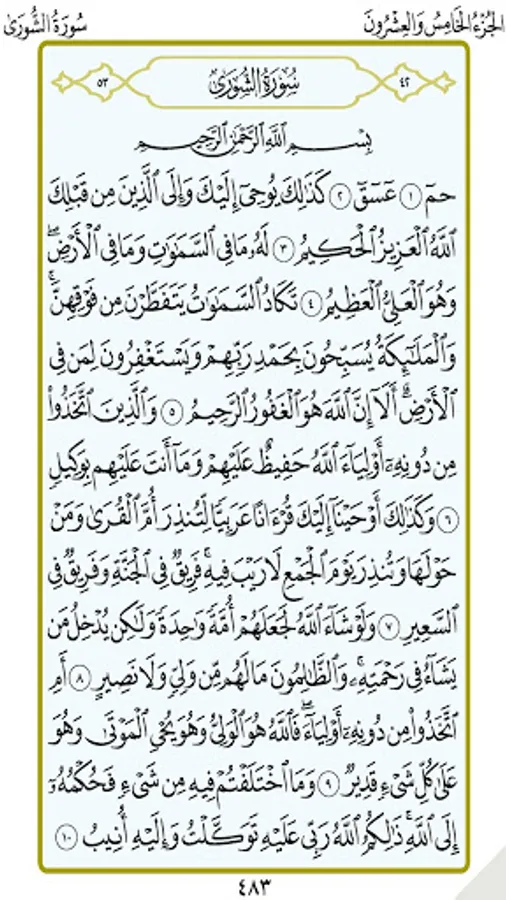 سُورَةُ الشُّورَىٰ الجُزْءُ الخَامِسُ وَالعِشْرُونَ
٥٣ سُورَةُ الشُّورَىٰ ٤٢
بِسْمِ اللَّهِ الرَّحْمَٰنِ الرَّحِيمِ
حمٓ ١ عٓسٓقٓ ٢ كَذَٰلِكَ يُوحِىٓ إِلَيْكَ وَإِلَى ٱلَّذِينَ مِن قَبْلِكَ
ٱللَّهُ ٱلْعَزِيزُ ٱلْحَكِيمُ ٣ لَهُۥ مَا فِى ٱلسَّمَٰوَٰتِ وَمَا فِى ٱلْأَرْضِۖ
وَهُوَ ٱلْعَلِىُّ ٱلْعَظِيمُ ٤ تَكَادُ ٱلسَّمَٰوَٰتُ يَتَفَطَّرْنَ مِن فَوْقِهِنَّۚ
وَٱلْمَلَٰٓئِكَةُ يُسَبِّحُونَ بِحَمْدِ رَبِّهِمْ وَيَسْتَغْفِرُونَ لِمَن فِى
ٱلْأَرْضِۗ أَلَآ إِنَّ ٱللَّهَ هُوَ ٱلْغَفُورُ ٱلرَّحِيمُ ٥ وَٱلَّذِينَ ٱتَّخَذُوا۟
مِن دُونِهِۦٓ أَوْلِيَآءَ ٱللَّهُ حَفِيظٌ عَلَيْهِمْ وَمَآ أَنتَ عَلَيْهِم بِوَكِيلٍ
٦ وَكَذَٰلِكَ أَوْحَيْنَآ إِلَيْكَ قُرْءَانًا عَرَبِيًّا لِّتُنذِرَ أُمَّ ٱلْقُرَىٰ وَمَنْ
حَوْلَهَا وَتُنذِرَ يَوْمَ ٱلْجَمْعِ لَا رَيْبَ فِيهِۚ فَرِيقٌ فِى ٱلْجَنَّةِ وَفَرِيقٌ فِى
ٱلسَّعِيرِ ٧ وَلَوْ شَآءَ ٱللَّهُ لَجَعَلَهُمْ أُمَّةً وَٰحِدَةً وَلَٰكِن يُدْخِلُ مَن
يَشَآءُ فِى رَحْمَتِهِۦۚ وَٱلظَّٰلِمُونَ مَا لَهُم مِّن وَلِىٍّ وَلَا نَصِيرٍ ٨ أَمِ
ٱتَّخَذُوا۟ مِن دُونِهِۦٓ أَوْلِيَآءَۖ فَٱللَّهُ هُوَ ٱلْوَلِىُّ وَهُوَ يُحْىِ ٱلْمَوْتَىٰ وَهُوَ
عَلَىٰ كُلِّ شَىْءٍ قَدِيرٌ ٩ وَمَا ٱخْتَلَفْتُمْ فِيهِ مِن شَىْءٍ فَحُكْمُهُۥٓ
إِلَى ٱللَّهِۚ ذَٰلِكُمُ ٱللَّهُ رَبِّى عَلَيْهِ تَوَكَّلْتُ وَإِلَيْهِ أُنِيبُ ١٠
٤٨٣